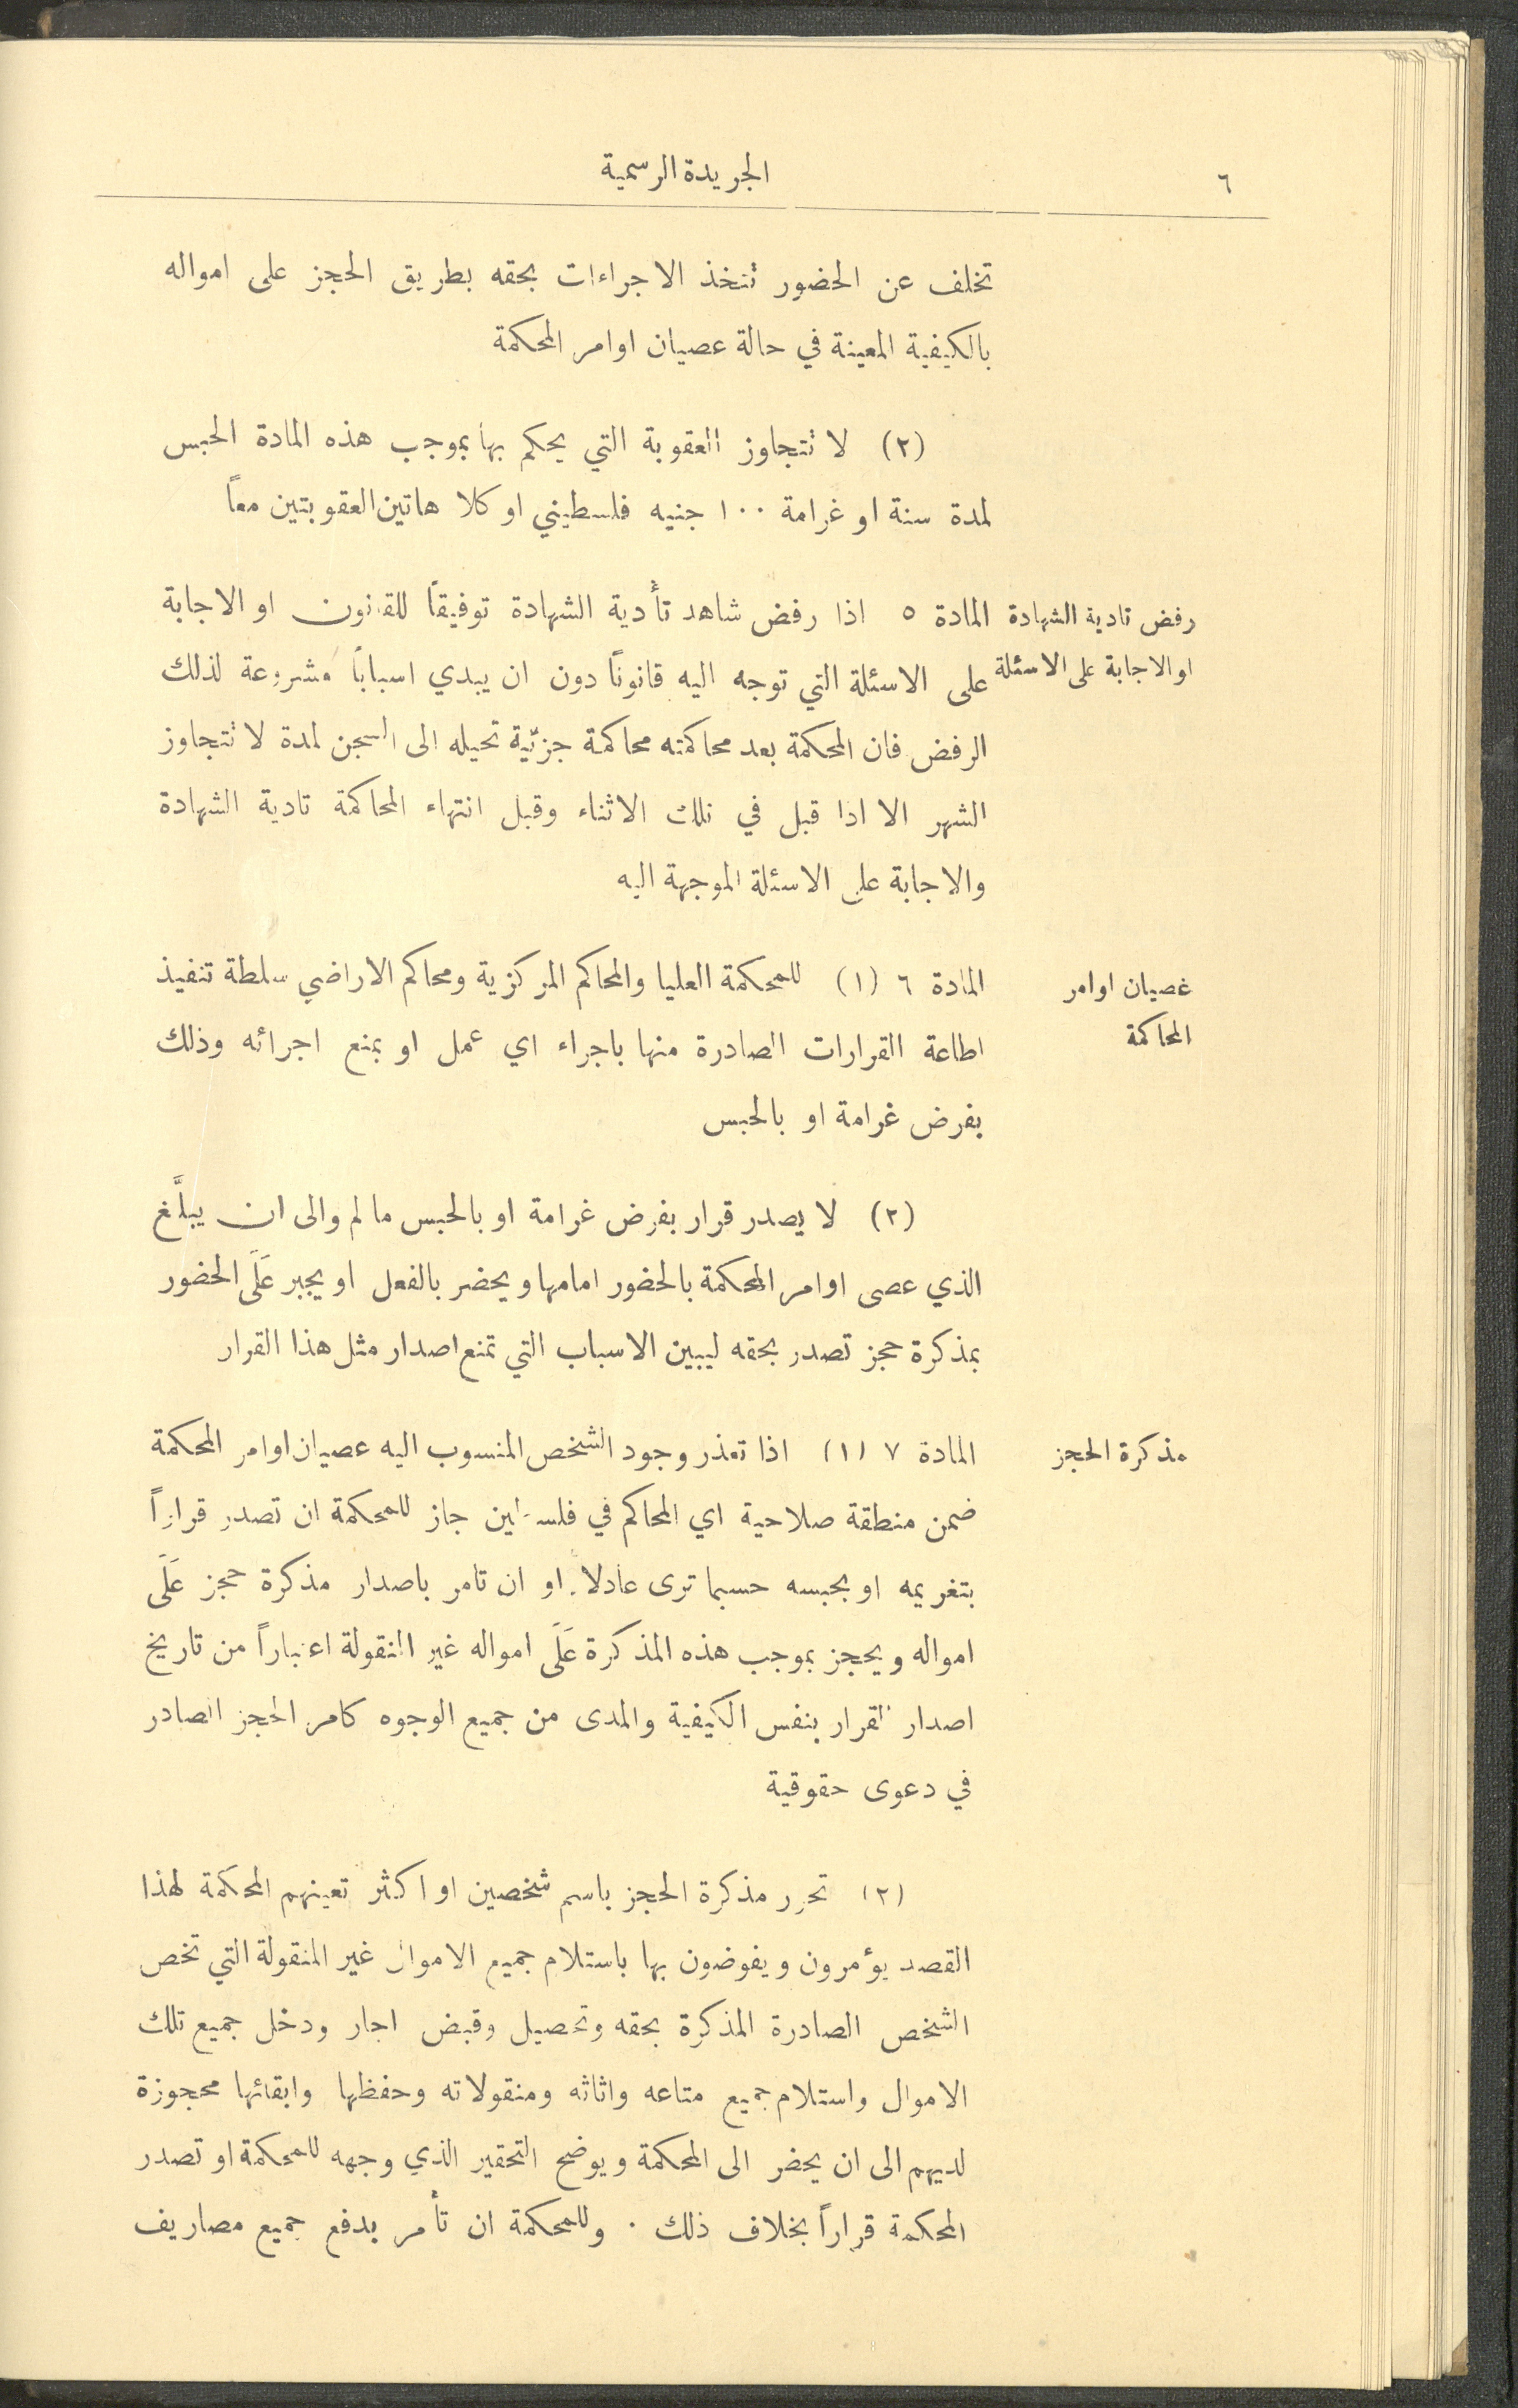 ٦
الجريدة الرسمية
تخلف عن الحضور تتخذ الاجراءات بحقه بطريق الحجز على امواله
بالكيفية المعينة في حالة عصيان اوامر المحكمة
(٢) لا تتجاوز العقوبة التي يحكم بها بموجب هذه المادة الحبس
لمدة سنة او غرامة ١٠٠ جنيه فلسطيني او كلا هاتين العقوبتين معاً
رفض تادية الشهادة
او الاجابة على الاسئلة
المادة ٥ اذا رفض شاهد تأدية الشهادة توفيقاً للقانون او الاجابة
على الاسئلة التي توجه اليه قانوناً دون ان يبدي اسباباً مشروعة لذلك
الرفض فان المحكمة بعد محاكمته محاكمة جزئية تحيله الى السجن لمدة لا تتجاوز
الشهر الا اذا قبل في تلك الاثناء وقبل انتهاء المحاكمة تادية الشهادة
والاجابة على الاسئلة الموجهة اليه
غصيان اوامر
المحاكمة
المادة ٦ (١) للمحكمة العليا والمحاكم المركزية ومحاكم الاراضي سلطة تنفيذ
اطاعة القرارات الصادرة منها باجراء اي عمل او بمنع اجرائه وذلك
بفرض غرامة او بالحبس
(٢) لا يصدر قرار بفرض غرامة او بالحبس ما لم والى ان يبلَّغ
الذي عصى اوامر المحكمة بالحضور امامها ويحضر بالفعل او يجبر عَلَى الحضور
بمذكرة حجز تصدر بحقه ليبين الاسباب التي تمنع اصدار مثل هذا القرار
مذكرة الحجز
المادة ٧ (١) اذا تعذر وجود الشخص المنسوب اليه عصيان اوامر المحكمة
ضمن منطقة صلاحية اي المحاكم في فلسطين جاز للمحكمة ان تصدر قراراً
بتغريمه او بحبسه حسبما ترى عادلاً او ان تامر باصدار مذكرة حجز عَلَى
امواله ويحجز بموجب هذه المذكرة عَلَى امواله غير المنقولة اعتباراً من تاريخ
اصدار القرار بنفس الكيفية والمدى من جميع الوجوه كامر الحجز الصادر
في دعوى حقوقية
(٢) تحرر مذكرة الحجز باسم شخصين او اكثر تعينهم المحكمة لهذا
القصد يؤمرون ويفوضون بها باستلام جميع الاموال غير المنقولة التي تخص
الشخص الصادرة المذكرة بحقه وتحصيل وقبض اجار ودخل جميع تلك
الاموال واستلام جميع متاعه واثاثه ومنقولاته وحفظها وابقائها محجوزة
لديهم الى ان يحضر الى المحكمة ويوضح التحقير الذي وجهه للمحكمة او تصدر
المحكمة قراراً بخلاف ذلك . وللمحكمة ان تأمر بدفع جميع مصاريف